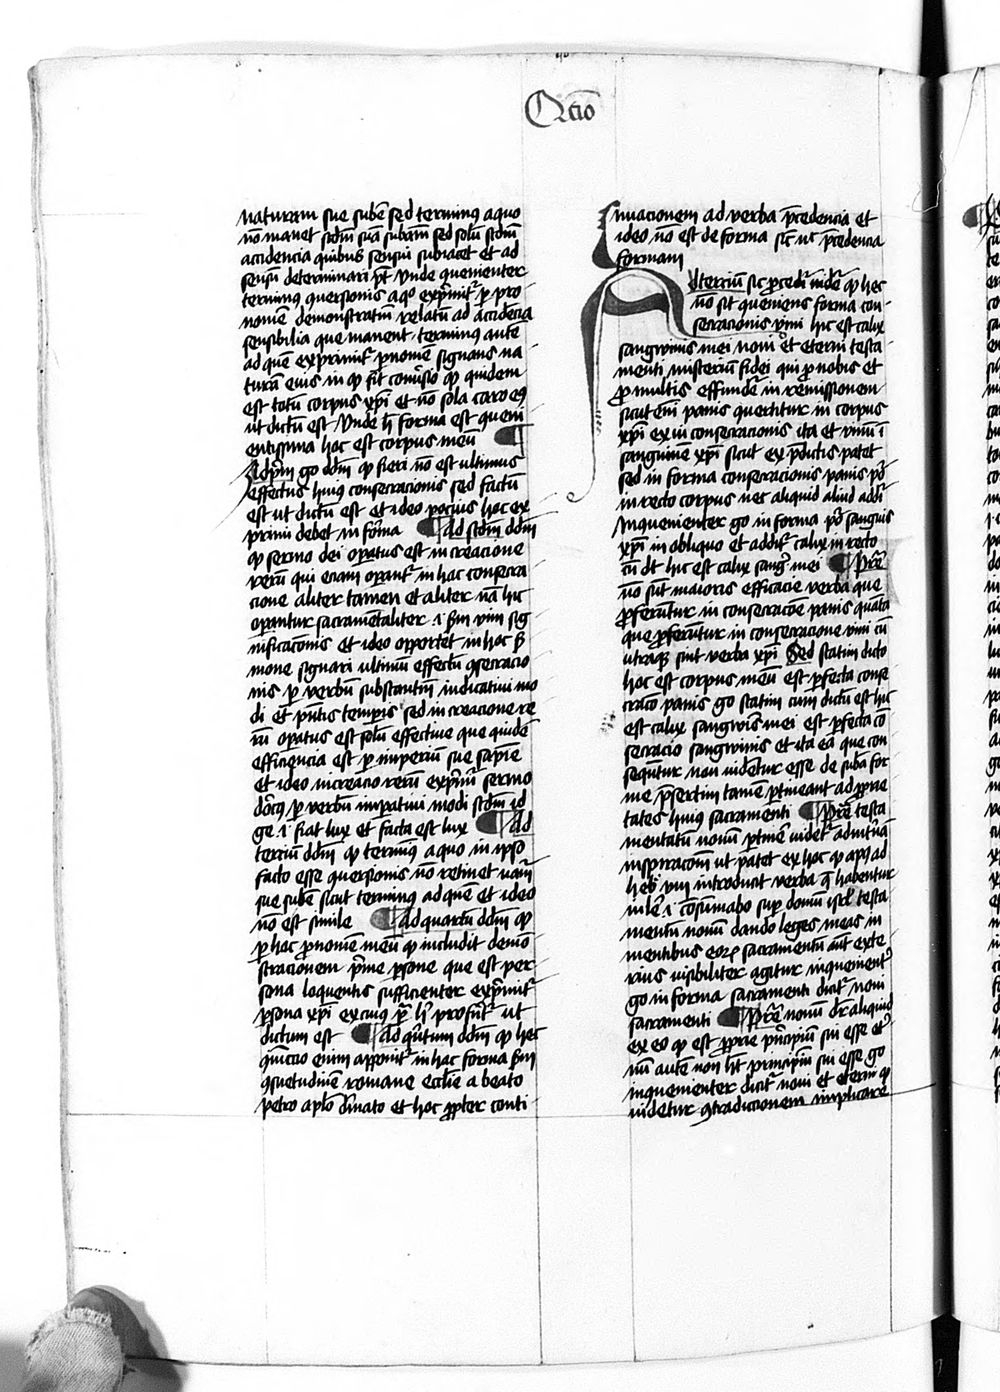 Qestio
naturam sue substancie sed terminus a quo
non manet secundum suam substanciam sed solum secundum
accidencia quibus sensui subiacet et ad
sensum determinari potest Unde conuenienter
terminus conuersionis a quo exprimitur per pro
nomen demonstratiuum relatum ad accidencia
sensibilia que manent terminus autem
ad quem exprimitur per nomen signans na
turam eius in quod fit conuersio quod quidem
est totum corpus xpi et non sola caro eius
ut dictum est Unde hec forma est conueni
entissima hoc est corpus meum
Ad primum ergo dicendum quod fieri non est ultimus
effectus huius consecracionis sed factum
est ut dictum est et ideo pocius hoc ex
primi debet in forma Ad secundum dicendum
quod sermo dei operatus est in creacione
rerum qui eciam operatur in hac consecra
cione aliter tamen et aliter nam hic
operatur sacramentaliter i secundum vim sig
nificacionis et ideo oportet in hoc ser
mone signari ultimum effectum consecracio
nis per verbum substantiuum indicatiui mo
di et presentis temporis sed in creacione re
rum operatus est solum effectiue que quidem
efficiencia est per imperium sue sapiencie
et ideo in creacione rerum exprimitur sermo
domini per verbum imperatiui modi secundum id
ge i fiat lux et facta est lux Ad
tercium dicendum quod terminus a quo in ipso
facto esse conuersionis non retinet naturam
sue substancie sicut terminus ad quem et ideo
non est simile Ad quartum dicendum quod
per hoc pronomen meum quod includit demon
stracionem prime persone que est per
sona loquentis sufficienter exprimitur
persona xpi ex cuius persona hec proferuntur ut
dictum est Ad quintum dicendum quod hec
coniunctio enim apponitur in hac forma secundum
consuetudinem romane ecclesie a beato
petro apostolo deriuata et hoc propter conti
nuacionem ad verba precedencia et
ideo non est de forma sicut nec precedencia
formam
Ad tercium sic proceditur videtur quod hec
non sit conueniens forma con
secracionis vini hic est calix
sanguinis mei noui et eterni testa
menti misterium fidei qui pro nobis et
pro multis effundetur in remissionem
sicut enim panis conuertitur in corpus
xpi ex ui consecracionis ita et vinum in
sanguinem xpi sicut ex predictis patet
sed in forma consecracionis panis ponitur
in recto corpus nec aliquid aliud additur
inconuenienter ergo in forma ponitur sanguis
xpi in obliquo et additur calix in recto
cum dicitur hic est calix sanguinis mei Preterea
non sunt maioris efficacie verba que
proferuntur in consecracione panis quam ea
que proferuntur in consecracione vini cum
utraque sint verba xpi Sed statim dicto
hoc est corpus meum est perfecta conse
cracio panis ergo statim cum dictum est hic
est calix sanguinis mei est perfecta con
secracio sanguinis et ita ea que con
sequntur non uidentur esse de substancia for
me presertim tamen pertineant ad proprie
tates huius sacramenti Preterea testa
mentum nouum pertinere uidetur ad internam
inspiracionem ut patet ex hoc quod apostolus ad
hebreos viii introducit verba que habentur
in iere i consumabo super domum israel testa
mentum nouum dando leges meas in
mentibus eorum sacramentum autem exte
rius uisibiliter agitur inconuenienter
ergo in forma sacramenti dicitur noui
sacramenti Preterea nouum dicitur aliquid
ex eo quod est prope principium sui esse eter
num autem non habet principium sui esse ergo
inconuenienter dicitur noui et eterni quod
uidetur contradictionem implicare